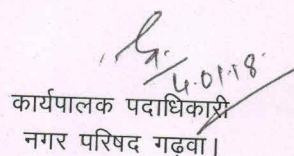 4.01.18.
कार्यपालक पदाधिकारी
नगर परिषद गढ़वा।